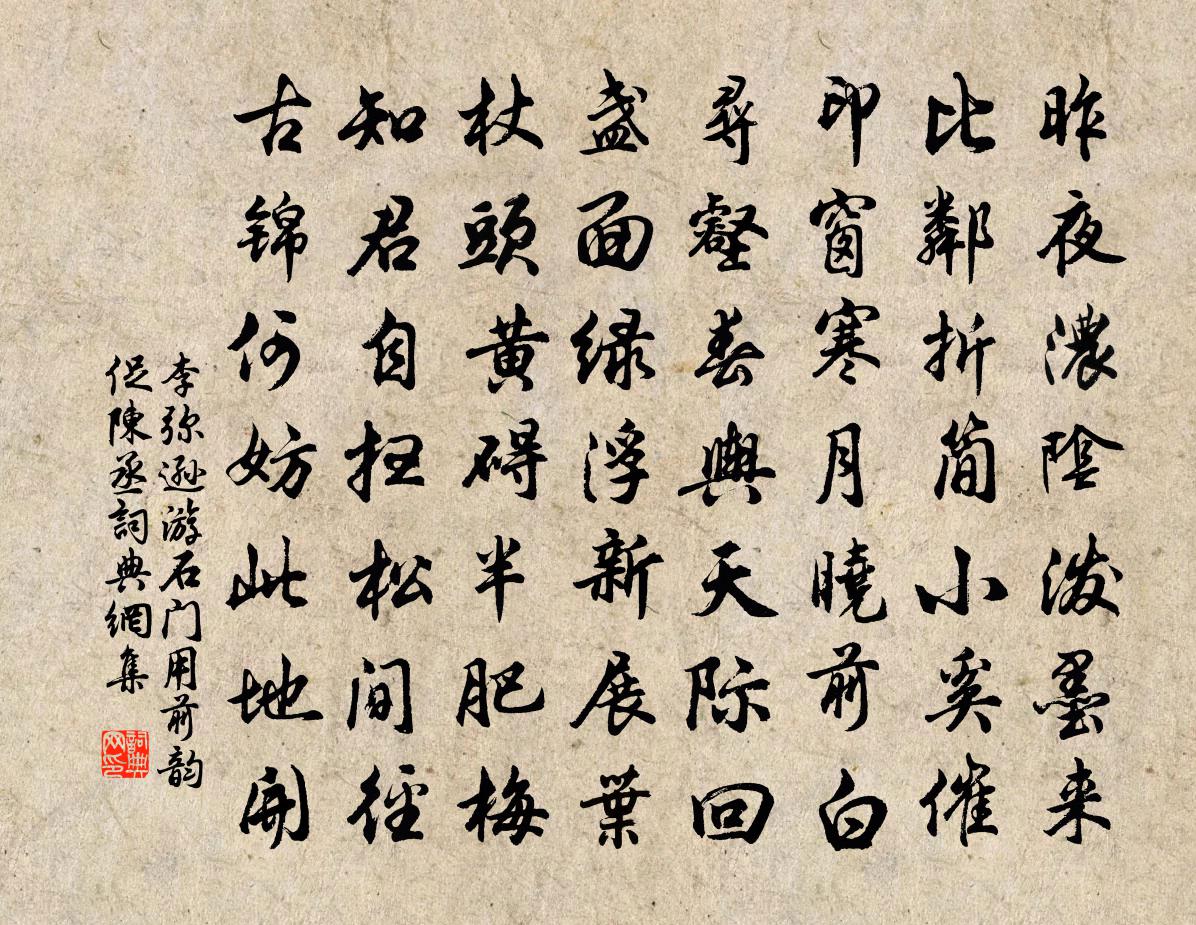 昨夜濃陰潑墨来
比鄰折簡小奚催
印窗寒月曉前白
尋壑春輿天际回
盏面緑浮新展葉
杖頭黄碍半肥梅
知君自扫松間徑
古锦何妨此地開
李弥遜游石门用前韵
促陳丞詞典網集
詞典网印